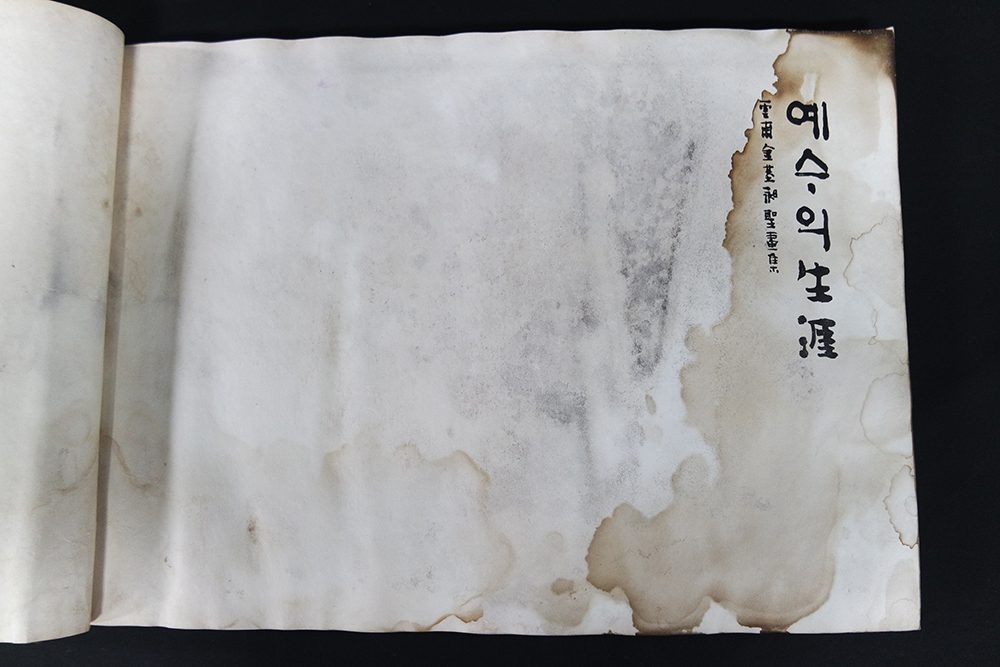 예수의 生涯
雲甫金基昶聖畫集